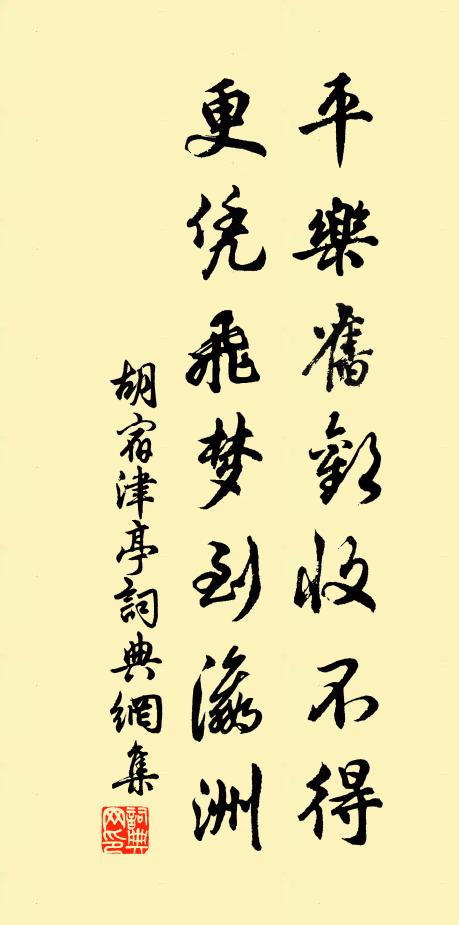 平樂舊歡收不得
更凭飛梦到瀛洲
胡宿津亭詞典網集
詞典网印